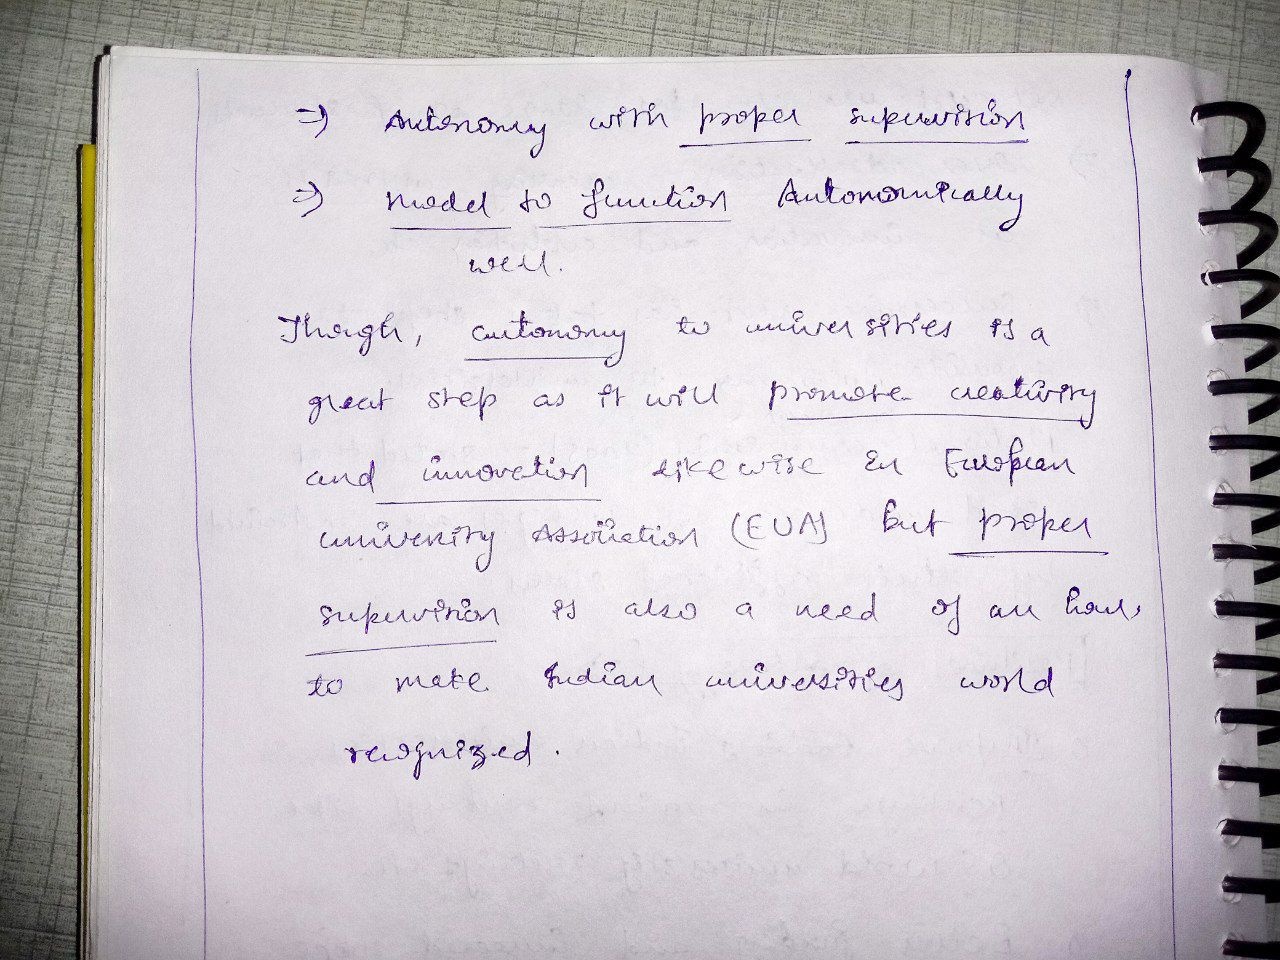 ⇒ Autonomy with proper supervision
⇒ Model to function Autonomically
well.
Though, autonomy to universities is a
great step as it will promote creativity
and innovation likewise in European
university Association (EUA) but proper
supervision is also a need of an hour
to make Indian universities world
recognized.